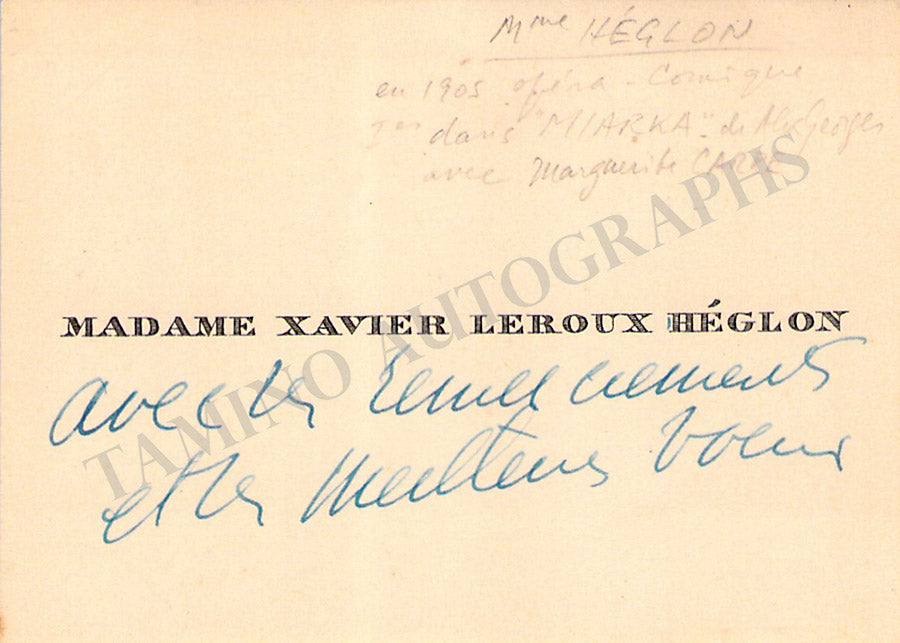 Mme HÉGLON
en 1905 opéra-Comique
dans "MIARKA" de Alex Georges
avec Marguerite CARRÉ
MADAME XAVIER LEROUX HÉGLON
avec les remerciements
et les meilleurs voeux
TAMINO AUTOGRAPHS